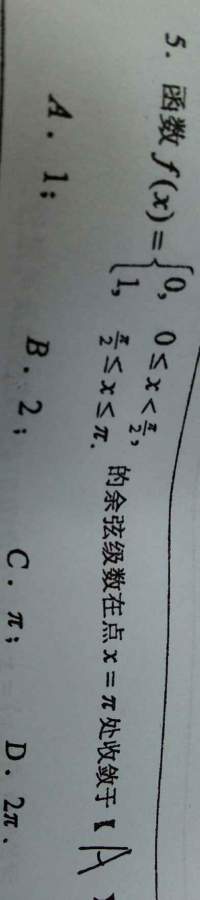 5. 函数 f(x) = { 0, 0 ≤ x < π/2, 1, π/2 ≤ x ≤ π. 的余弦级数在点 x = π 处收敛于【A】
A. 1; B. 2; C. π; D. 2π.